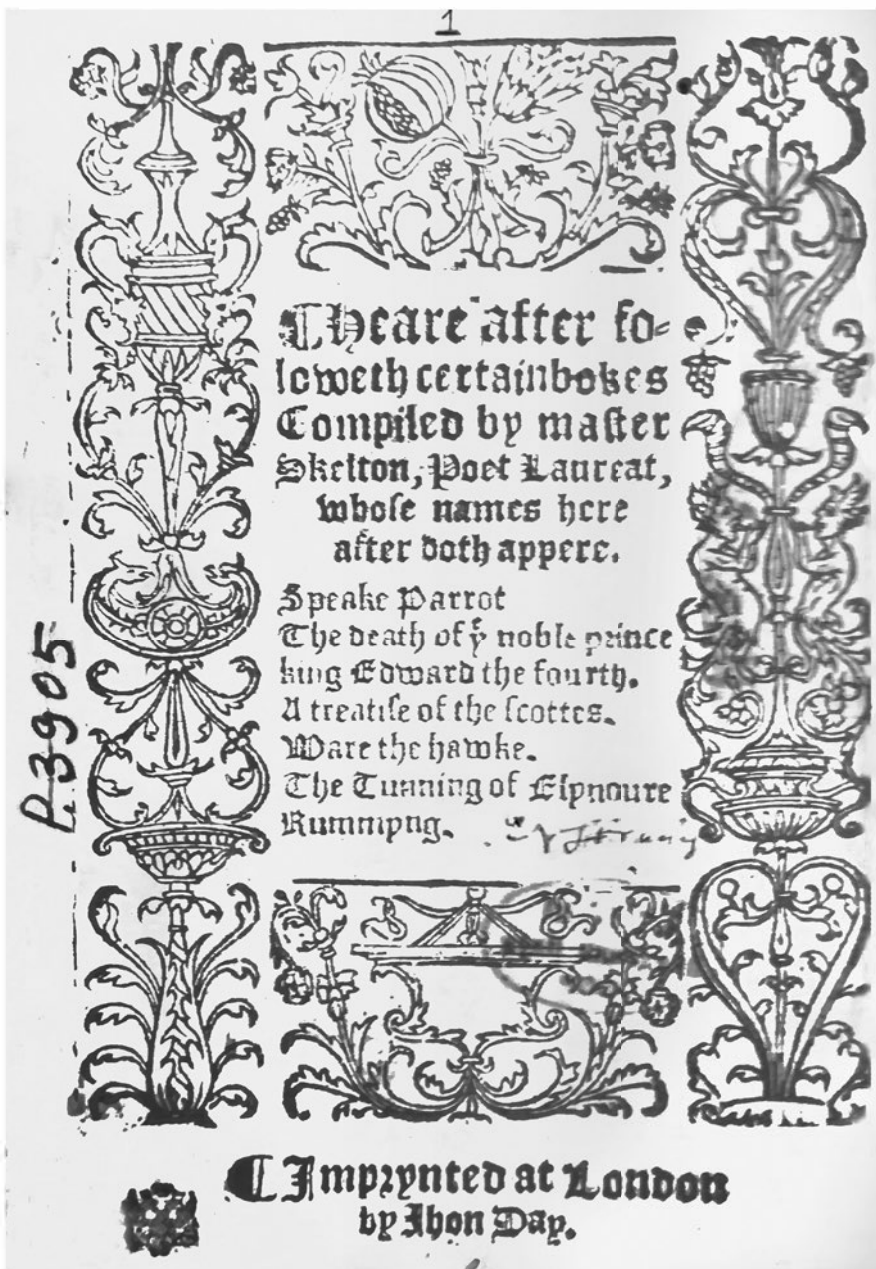 1
¶Heare after fo⸗
loweth certain bokes
Compiled by master
Skelton, Poet Laureat,
whose names here
after doth appere.
Speake Parrot
The death of yͤ noble prince
king Edward the fourth.
A treatise of the scottes.
Ware the hawke.
The Tunning of Elynoure
Rummyng.
P.3905
¶Imprynted at London
by Ihon Day.